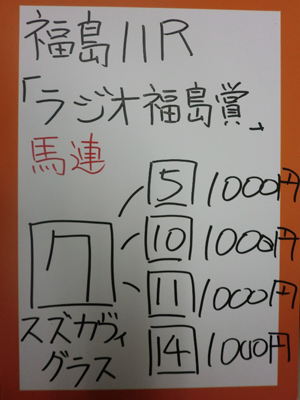 福島11R
「ラジオ福島賞」
馬連
5 1000円
10 1000円
7
11 1000円
スズカヴィグラス
14 1000円